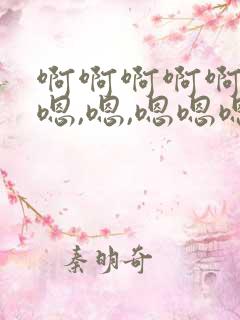 啊啊啊啊啊
嗯,嗯,嗯嗯嗯
秦明奇